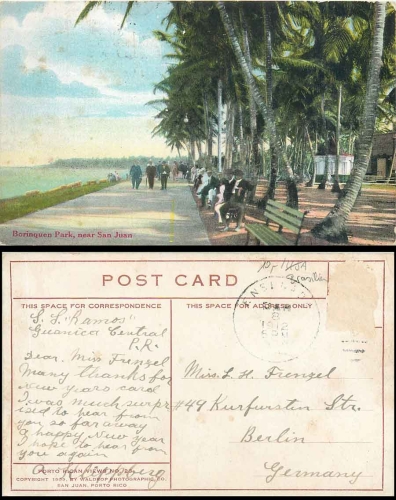 Borinquen Park, near San Juan
POST CARD
THIS SPACE FOR CORRESPONDENCE
THIS SPACE FOR ADDRESS ONLY
S. S. "Ramos"
Guanica Central
P.R.
Dear Miss Frenzel
Many thanks for
New years card
I was much surpr
ised to hear from
you, so far away
A happy New Year
I hope to hear from
you again
Miss L. H. Frenzel
#49 Kurfursten Str.
Berlin
Germany
PORTO RICAN VIEWS NO.
COPYRIGHT BY WALDROP PHOTOGRAPHIC CO.
SAN JUAN, PORTO RICO